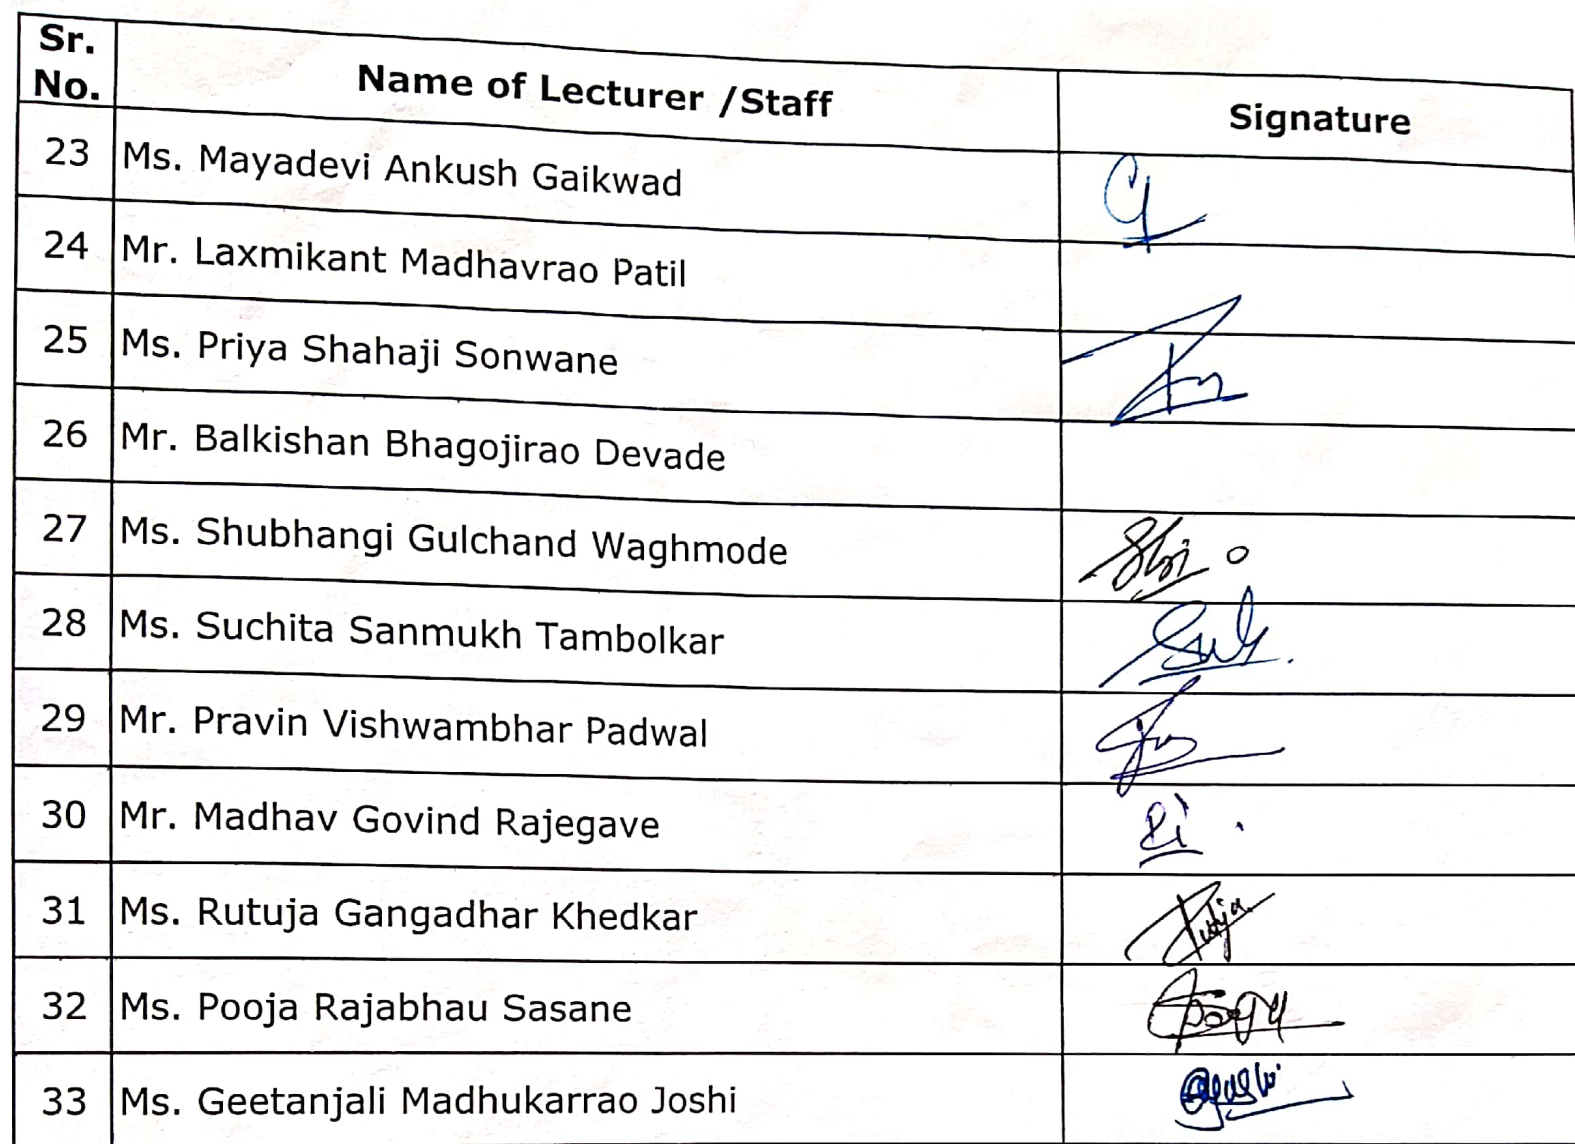 Sr. No. Name of Lecturer /Staff Signature
23 Ms. Mayadevi Ankush Gaikwad
24 Mr. Laxmikant Madhavrao Patil
25 Ms. Priya Shahaji Sonwane
26 Mr. Balkishan Bhagojirao Devade
27 Ms. Shubhangi Gulchand Waghmode
28 Ms. Suchita Sanmukh Tambolkar
29 Mr. Pravin Vishwambhar Padwal
30 Mr. Madhav Govind Rajegave
31 Ms. Rutuja Gangadhar Khedkar
32 Ms. Pooja Rajabhau Sasane
33 Ms. Geetanjali Madhukarrao Joshi